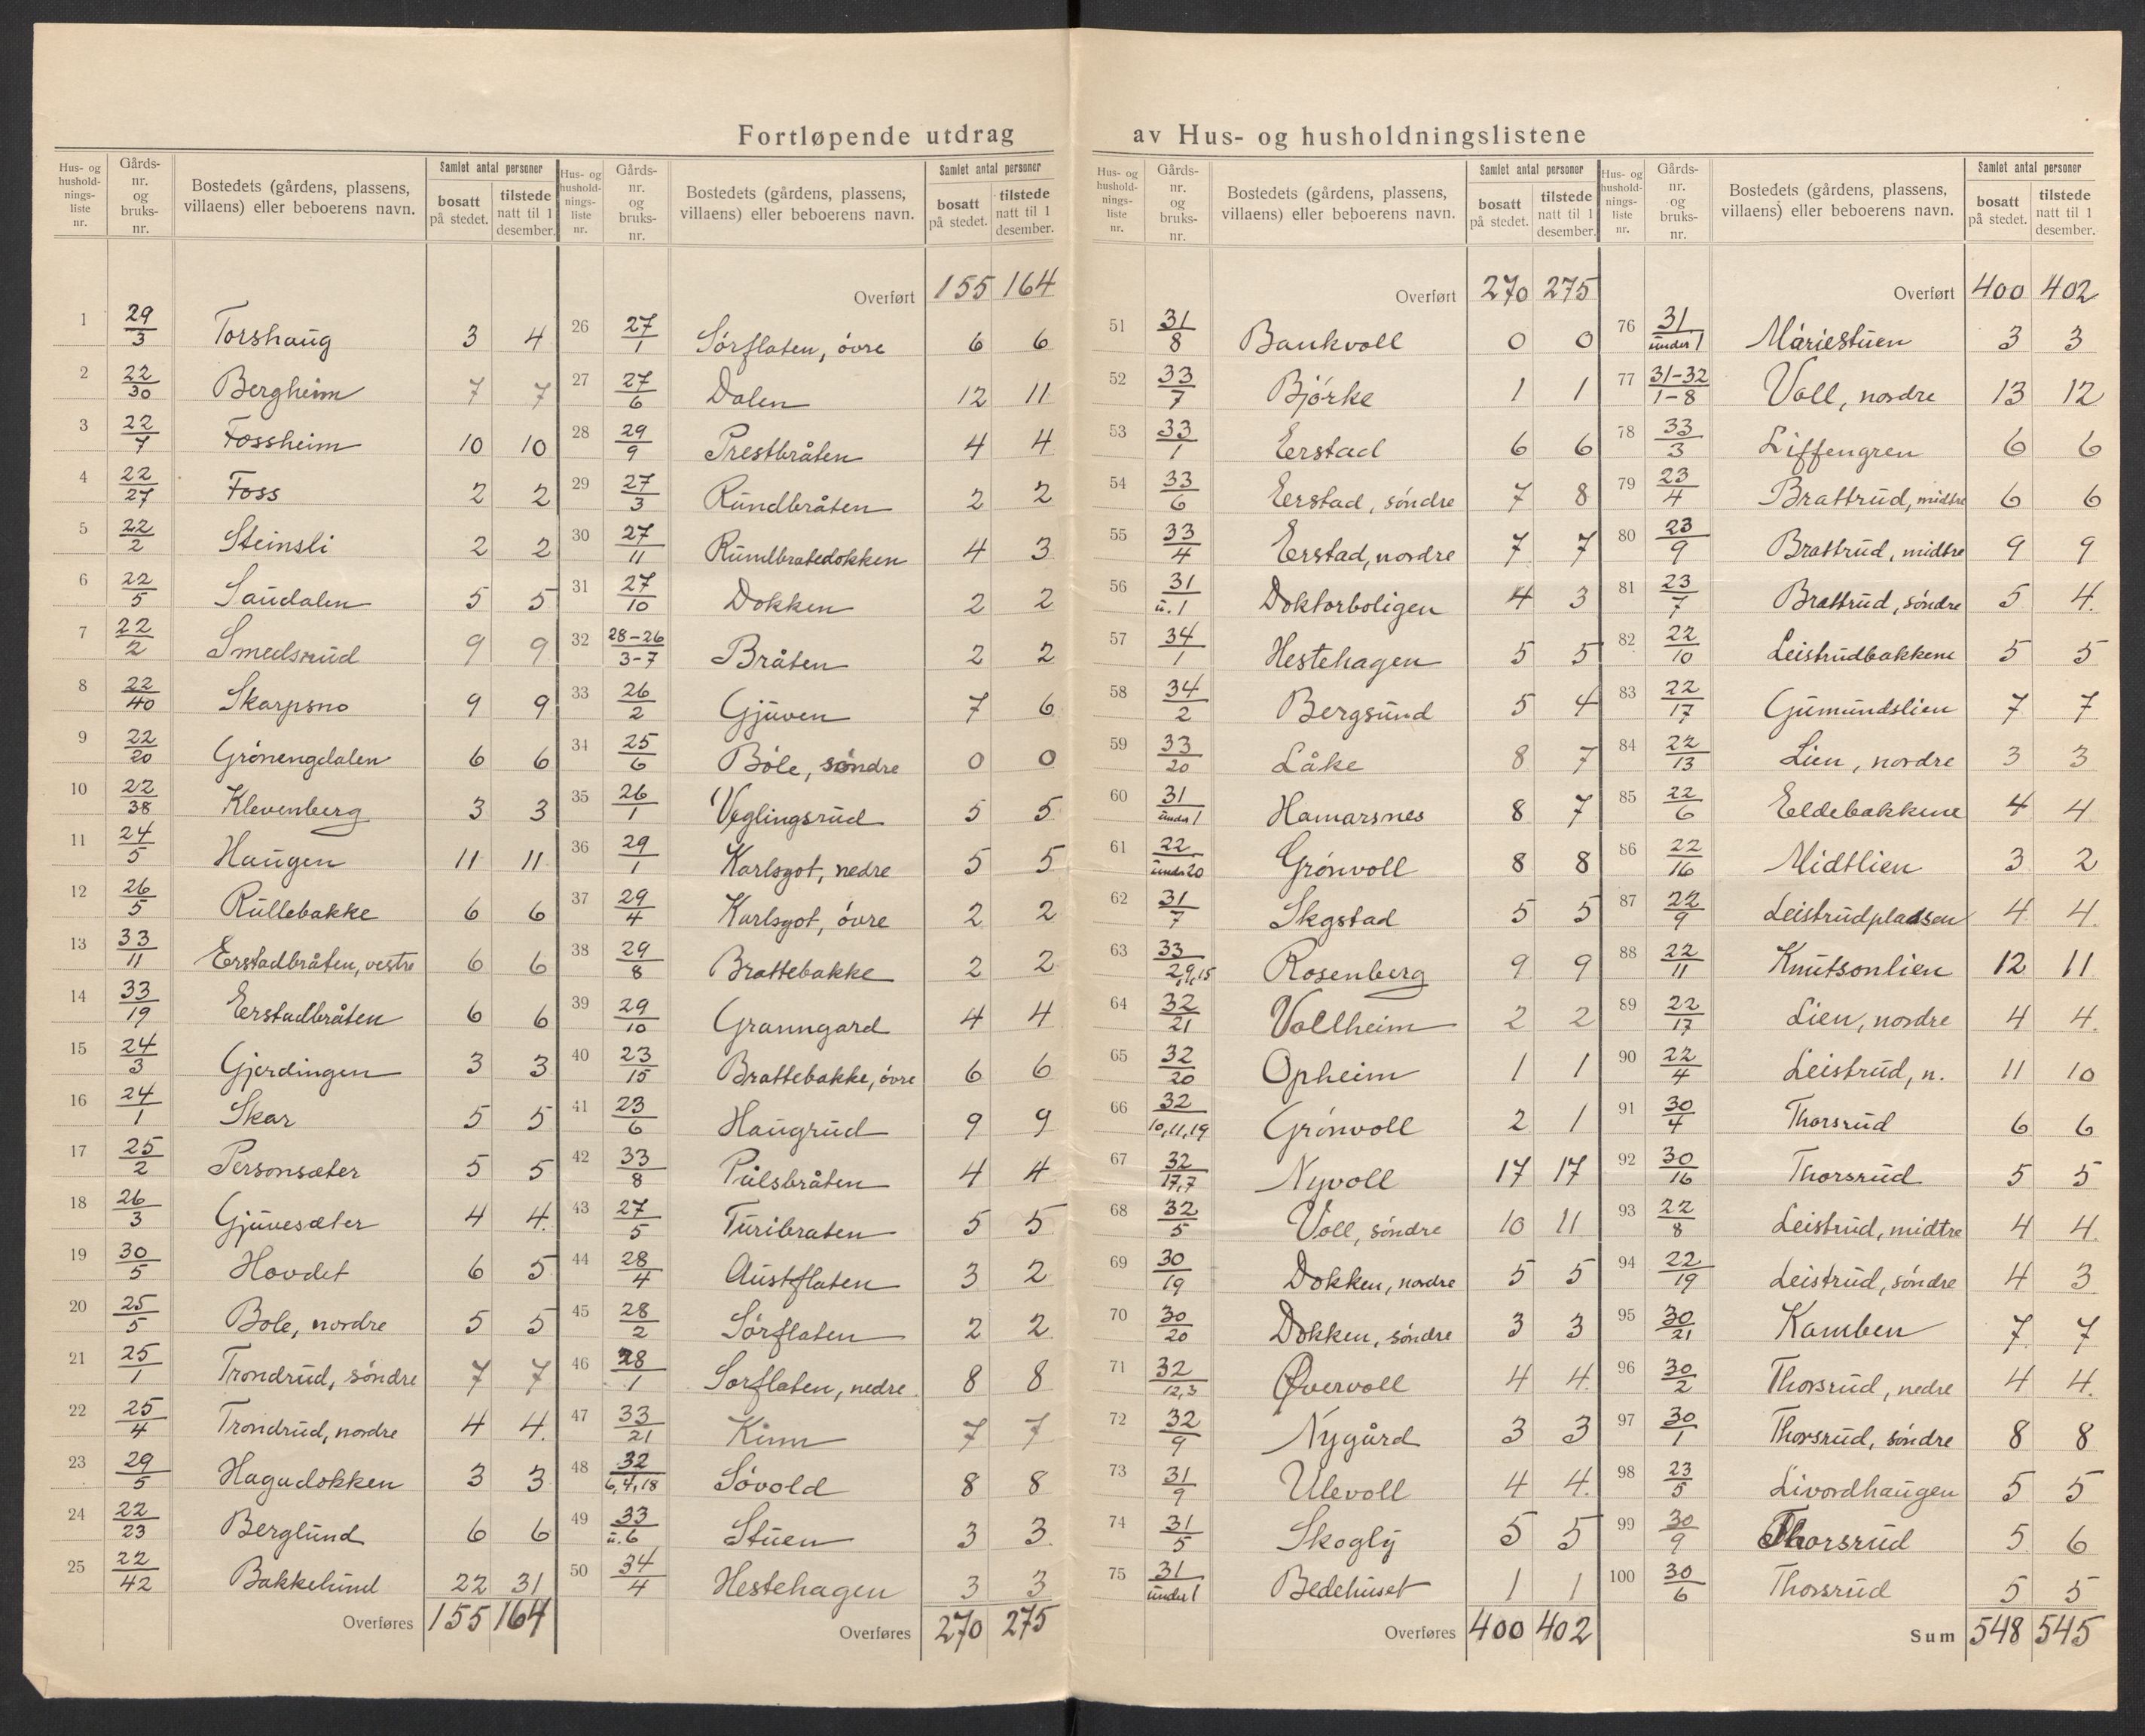 Fortløpende utdrag av Hus- og husholdningslistene
Hus- og husholdnings-liste nr. | Gårds-nr. og bruks-nr. | Bostedets (gårdens, plassens, villaens) eller beboerens navn. | Samlet antal personer: bosatt på stedet. | tilstede natt til 1 desember.
1 29/3 Torshaug 3 4
2 22/30 Bergheim 7 7
3 22/7 Fossheim 10 10
4 22/27 Foss 2 2
5 22/2 Steinsli 2 2
6 22/5 Saudalen 5 5
7 22/2 Smedsrud 9 9
8 22/40 Skarpsno 9 9
9 22/20 Grønengdalen 6 6
10 22/38 Klevenberg 3 3
11 24/5 Haugen 11 11
12 26/5 Rullebakke 6 6
13 33/11 Erstadbråten, vestre 6 6
14 33/19 Eerstadbråten 6 6
15 24/3 Gjerdingen 3 3
16 24/1 Skar 5 5
17 25/2 Personsæter 5 5
18 26/3 Gjuvesæter 4 4.
19 30/5 Hovdet 6 5
20 25/5 Bole, nordre 5 5
21 25/1 Trondrud, søndre 7 7
22 25/4 Trondrud, nordre 4 4.
23 29/5 Hagadokken 3 3
24 22/23 Berglund 6 6
25 22/42 Bakkelund 22 31
Overføres 155 164
Hus- og husholdnings-liste nr. | Gårds-nr. og bruks-nr. | Bostedets (gårdens, plassens, villaens) eller beboerens navn. | Samlet antal personer: bosatt på stedet. | tilstede natt til 1 desember.
Overført 155 164
26 27/1 Sørflaten, øvre 6 6
27 27/6 Dalen 12 11
28 29/9 Prestbråten 4 4
29 27/3 Rundbråten 2 2
30 27/11 Rundbratedokken 4 3
31 27/10 Dokken 2 2
32 28-26/3-7 Bråten 2 2
33 26/2 Gjuven 7 6
34 25/6 Bøle, søndre 0 0
35 26/1 Veglingsrud 5 5
36 29/1 Karlsgot, nedre 5 5
37 29/4 Karlsgot, øvre 2 2
38 29/8 Brattebakke 2 2
39 29/10 Granngard 4 4
40 23/15 Brattebakke, øvre 6 6
41 23/6 Haugrud 9 9
42 33/8 Pålsbråten 4 4
43 27/5 Turibraten 5 5
44 28/4 Austflaten 3 2
45 28/2 Sørflaten 2 2
46 28/1 Sorflaten, nedre 8 8
47 33/21 Kinn 7 7
48 32/6,4,18 Søvold 8 8
49 33/u.6 Stuen 3 3
50 34/4 Hestehagen 3 3
Overføres 270 275
Hus- og husholdnings-liste nr. | Gårds-nr. og bruks-nr. | Bostedets (gårdens, plassens, villaens) eller beboerens navn. | Samlet antal personer: bosatt på stedet. | tilstede natt til 1 desember.
Overført 270 275
51 31/8 Bankvoll 0 0
52 33/7 Bjørke 1 1
53 33/1 Eerstad 6 6
54 33/6 Eerstad, søndre 7 8
55 33/4 Eerstad, nordre 7 7
56 31/u.1 Doktorboligen 4 3
57 34/1 Hestehagen 5 5
58 34/2 Bergsund 5 4
59 33/20 Låke 8 7
60 31/under 1 Hamarsnes 8 7
61 22/under 20 Grønvoll 8 8
62 31/7 Skgstad 5 5
63 33/2,9,15 Rosenberg 9 9
64 32/21 Vollheim 2 2
65 32/20 Opheim 1 1
66 32/10,11,19 Grønvoll 2 1
67 32/17,7 Nyvoll 17 17
68 32/5 Voll, søndre 10 11
69 30/19 Dokken, nordre 5 5
70 30/20 Dokken, søndre 3 3
71 32/12,3 Øvervoll 4 4.
72 32/9 Nygård 3 3
73 31/9 Ulevoll 4 4.
74 31/5 Skogly 5 5
75 31/under 1 Bedehuset 1 1
Overføres 400 402
Hus- og husholdnings-liste nr. | Gårds-nr. og bruks-nr. | Bostedets (gårdens, plassens, villaens) eller beboerens navn. | Samlet antal personer: bosatt på stedet. | tilstede natt til 1 desember.
Overført 400 402
76 31/under 1 Mariestuen 3 3
77 31-32/1-8 Voll, nordre 13 12
78 33/3 Liffengren 6 6
79 23/4 Brattrud, midtre 6 6
80 23/9 Brattrud, midtre 9 9
81 23/7 Brattrud, søndre 5 4.
82 22/10 Leistrudbakkene 5 5
83 22/17 Gumundslien 7 7
84 22/13 Lien, nordre 3 3
85 22/6 Eeldebakkene 4 4
86 22/16 Midtlien 3 2
87 22/9 Leistrudpladsen 4 4.
88 22/11 Knutsonlien 12 11
89 22/17 Lien, nordre 4 4.
90 22/4 Leistrud, n. 11 10
91 30/4 Thorsrud 6 6
92 30/16 Thorsrud 5 5
93 22/8 Leistrud, midtre 4 4.
94 22/19 Leistrud, søndre 4 3
95 30/21 Kamben 7 7
96 30/2 Thorsrud, nedre 4 4.
97 30/1 Thorsrud, søndre 8 8
98 23/5 Livordhaugen 5 5
99 30/9 Thorsrud 5 6
100 30/6 Thorsrud 5 5
Sum 548 545